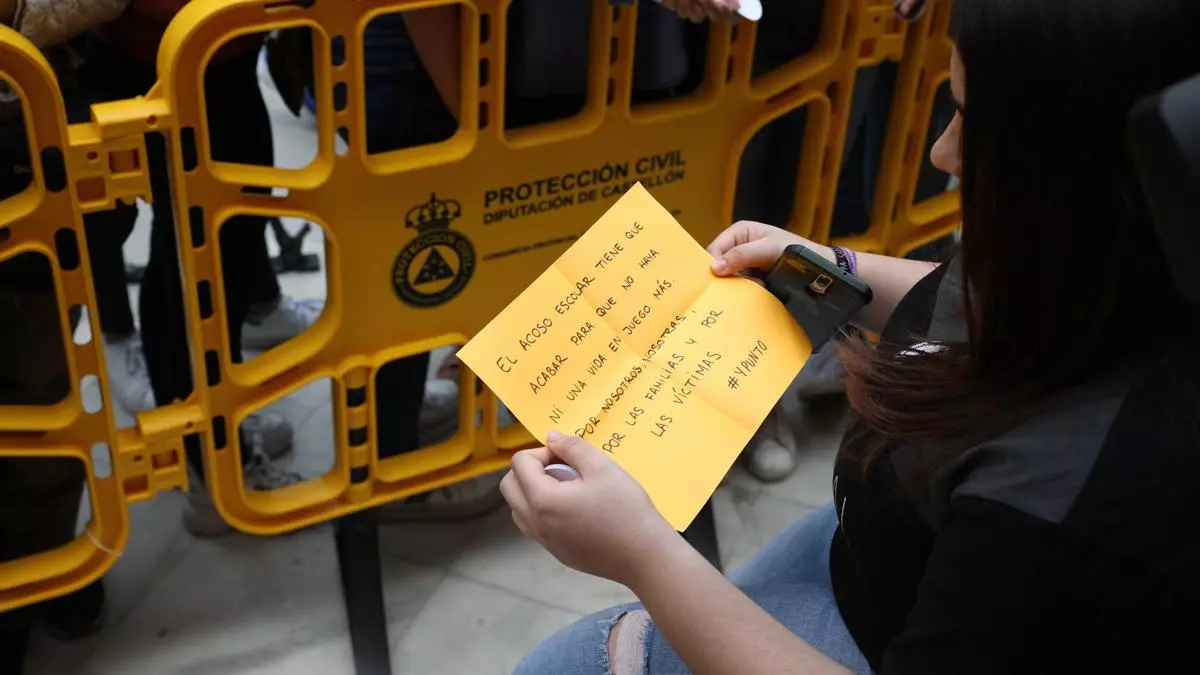 PROTECCIÓN CIVIL
DIPUTACIÓN DE CASTELLÓN
CONSORCIO PROVINCIAL
EL ACOSO ESCOLAR TIENE QUE
ACABAR PARA QUE NO HAYA
NI UNA VIDA EN JUEGO MÁS.
POR NOSOTROS, NOSOTRAS,
POR LAS FAMILIAS Y POR
LAS VÍCTIMAS.
#YPUNTO